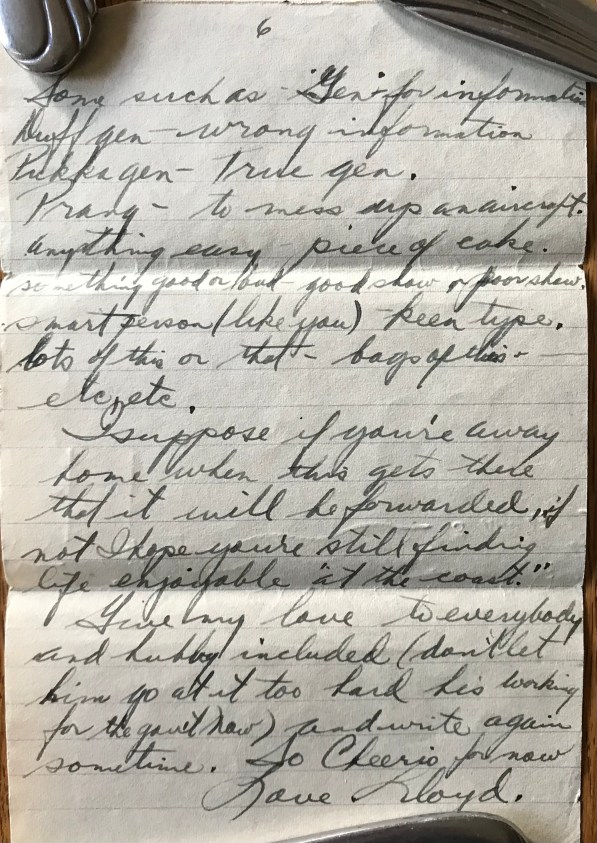 6
Some such as - "Gen" for information
Duff gen - wrong information
Pukka gen - True gen.
Prang - to mess up an aircraft.
anything easy - piece of cake.
something good or bad - good show or poor show.
smart person (like you) - keen type.
lots of this or that - bags of this -
etc, etc.
I suppose if you're away
home when this gets there
that it will be forwarded, if
not I hope you're still finding
life enjoyable "at the coast."
Give my love to everybody
and hubby included (don't let
him go at it too hard his working
for the gov't now) and write again
sometime. So Cheerio for now
Love Lloyd.